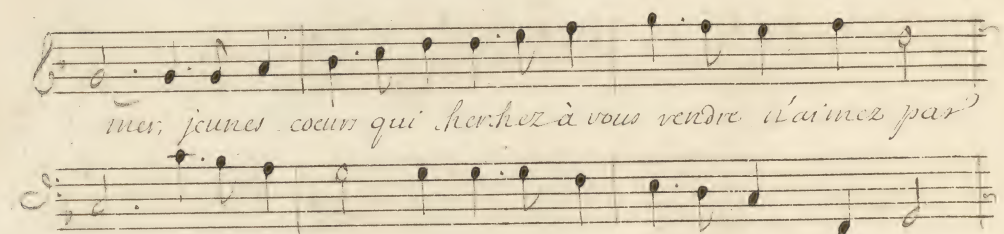 mer, jeunes coeurs qui cherchez à vous rendre n'aimez pas